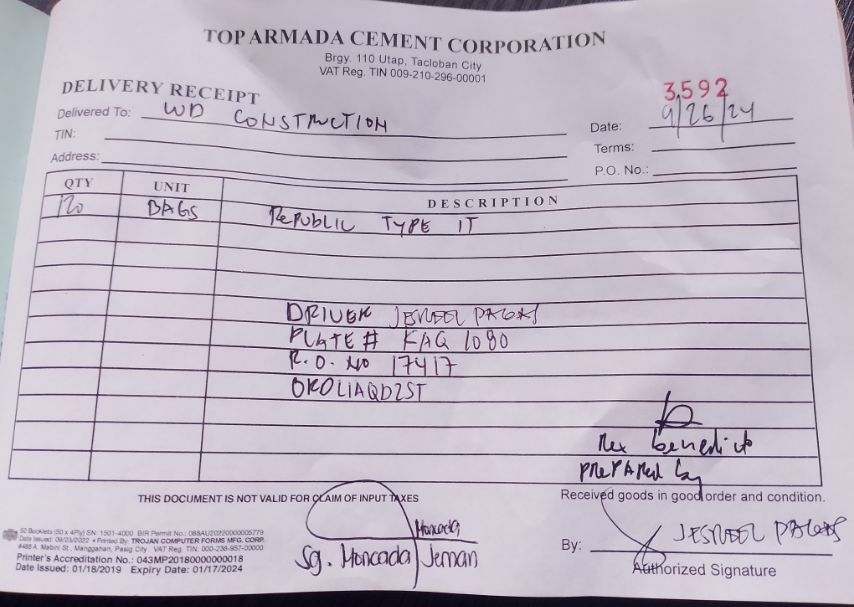 TOP ARMADA CEMENT CORPORATION
Brgy. 110 Utap, Tacloban City
VAT Reg. TIN 009-210-296-00001
DELIVERY RECEIPT
3,592
Delivered To: WD CONSTRUCTION
Date: 9/26/24
TIN:
Terms:
Address:
P.O. No.:
QTY UNIT DESCRIPTION
120 BAGS REPUBLIC TYPE 1T
DRIVER JESREEL PAGAS
PLATE # KAQ 1080
R.O. NO 17417
OROLIAQDZST
Rex Benedicto
PREPARED by
THIS DOCUMENT IS NOT VALID FOR CLAIM OF INPUT TAXES
Received goods in good order and condition.
50 Booklets (50 x 4Ply) SN: 1501-4000 BIR Permit No.: 088AU20220000005779
Date Issued: 09/23/2022 • Printed By: TROJAN COMPUTER FORMS MFG. CORP.
#488 A. Mabini St., Manggahan, Pasig City VAT Reg. TIN: 000-238-957-00000
Printer's Accreditation No.: 043MP20180000000018
Date Issued: 01/18/2019 Expiry Date: 01/17/2024
Moncada
Sg. Moncada/Jeman
By: JESREEL PAGAS
Authorized Signature